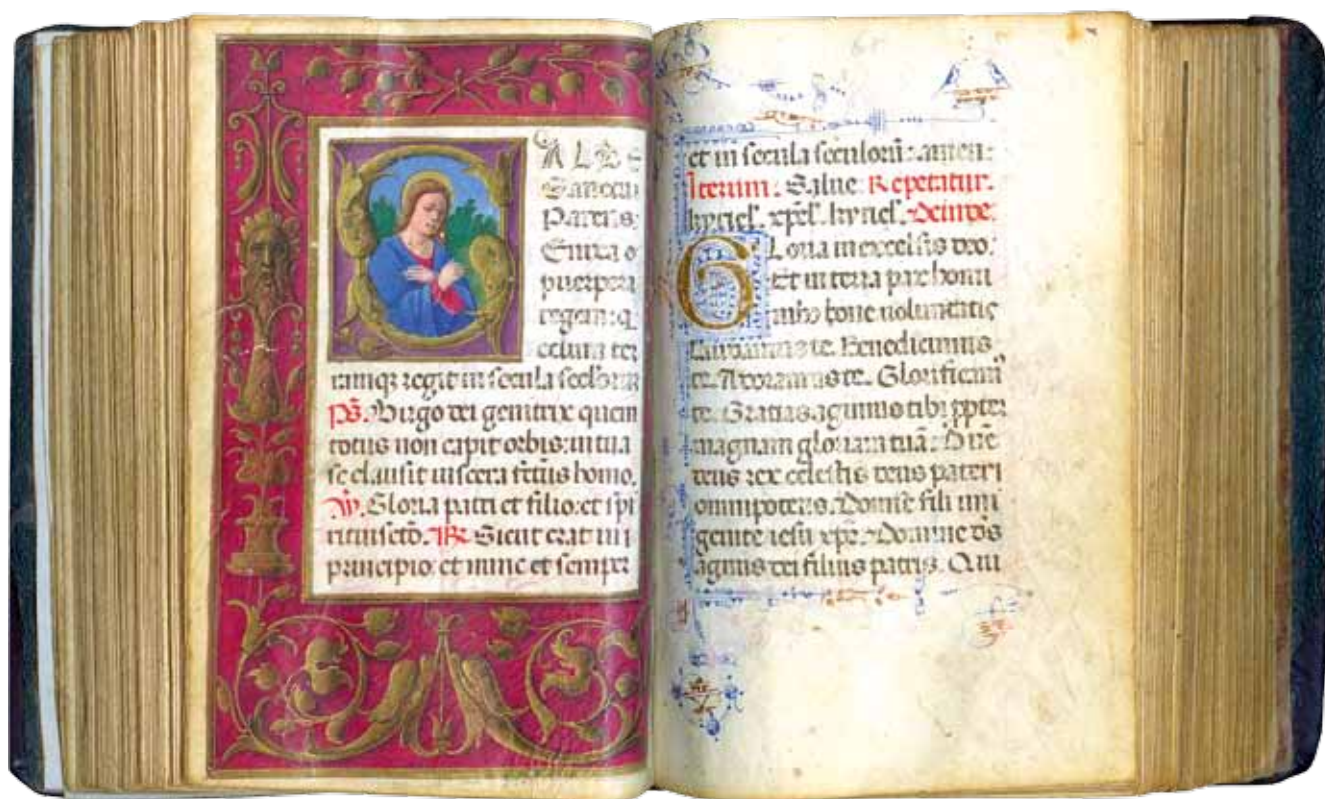 ALVE
Sancta
Parens:
Enixa
puerpera
regem: q
celum ter
ramqʒ regit in secula seclorum
Ps. Virgo dei genitrix quem
totus non capit orbis: in tua
se clausit viscera fctus homo.
V. Gloria patri et filio: et spi
ritui scto. R. Sicut erat in
principio: et nunc et semper
et in secula seculorū: amen:
Iterum: Salue: Repetatur.
kyriel. xpel. kyriel. Deinde.
GLoria in excelsis deo:
Et in terra pax homi
nibꝰ bone uoluntatis
Laudamus te. Benedicimus
te. Adoramus te. Glorificamꝰ
te. Gratias agimus tibi ppter
magnam gloriam tuā: Dñe
deus rex celestis deus pater
omnipotens. Domine fili uni
genite iesu xpe. Domine ds
agnus dei filius patris. Qui